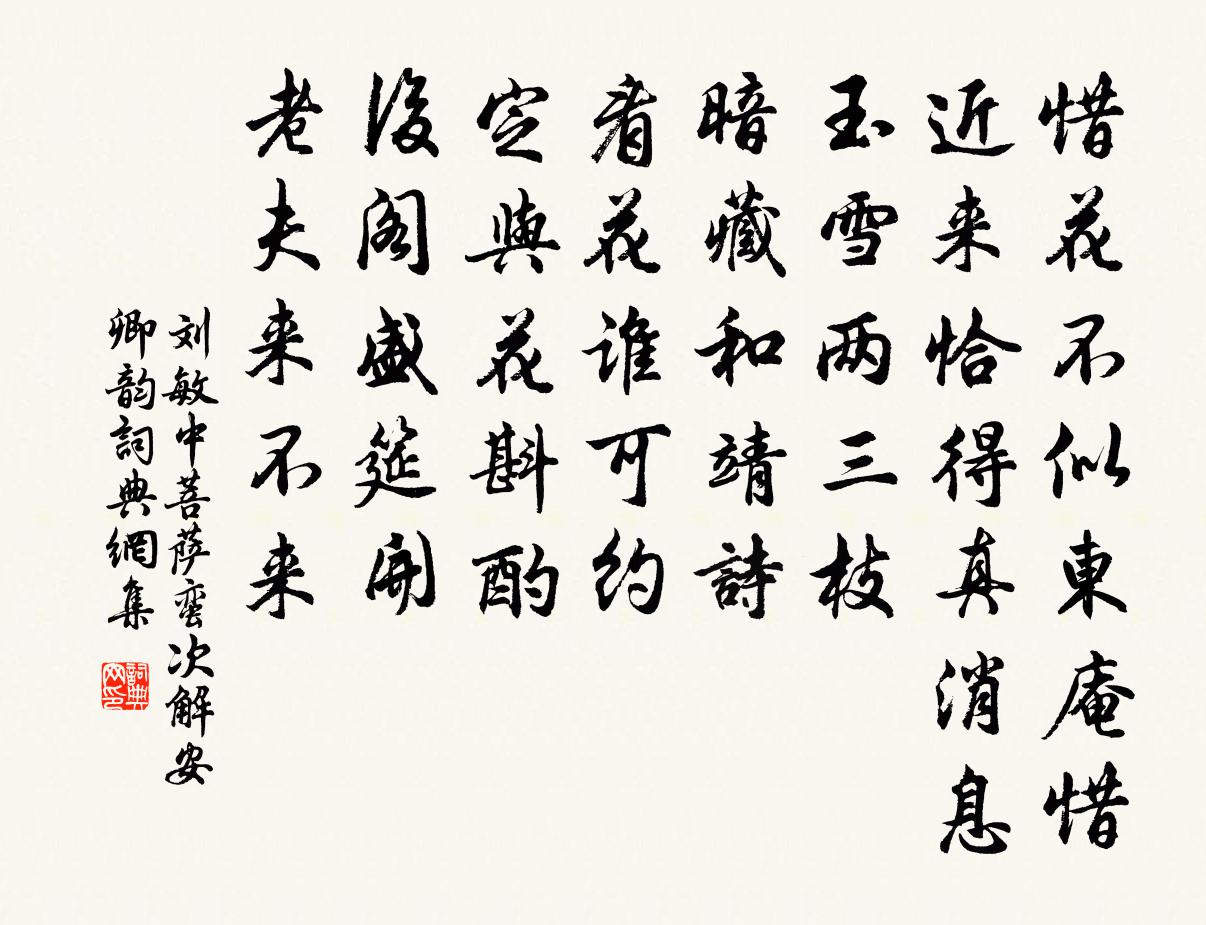 惜花不似東庵惜
近来恰得真消息
玉雪两三枝
暗藏和靖詩
看花誰可約
定與花斟酌
後閣盛筵開
老夫来不来
刘敏中菩萨蛮次解安
卿韵詞典網集
詞典网印